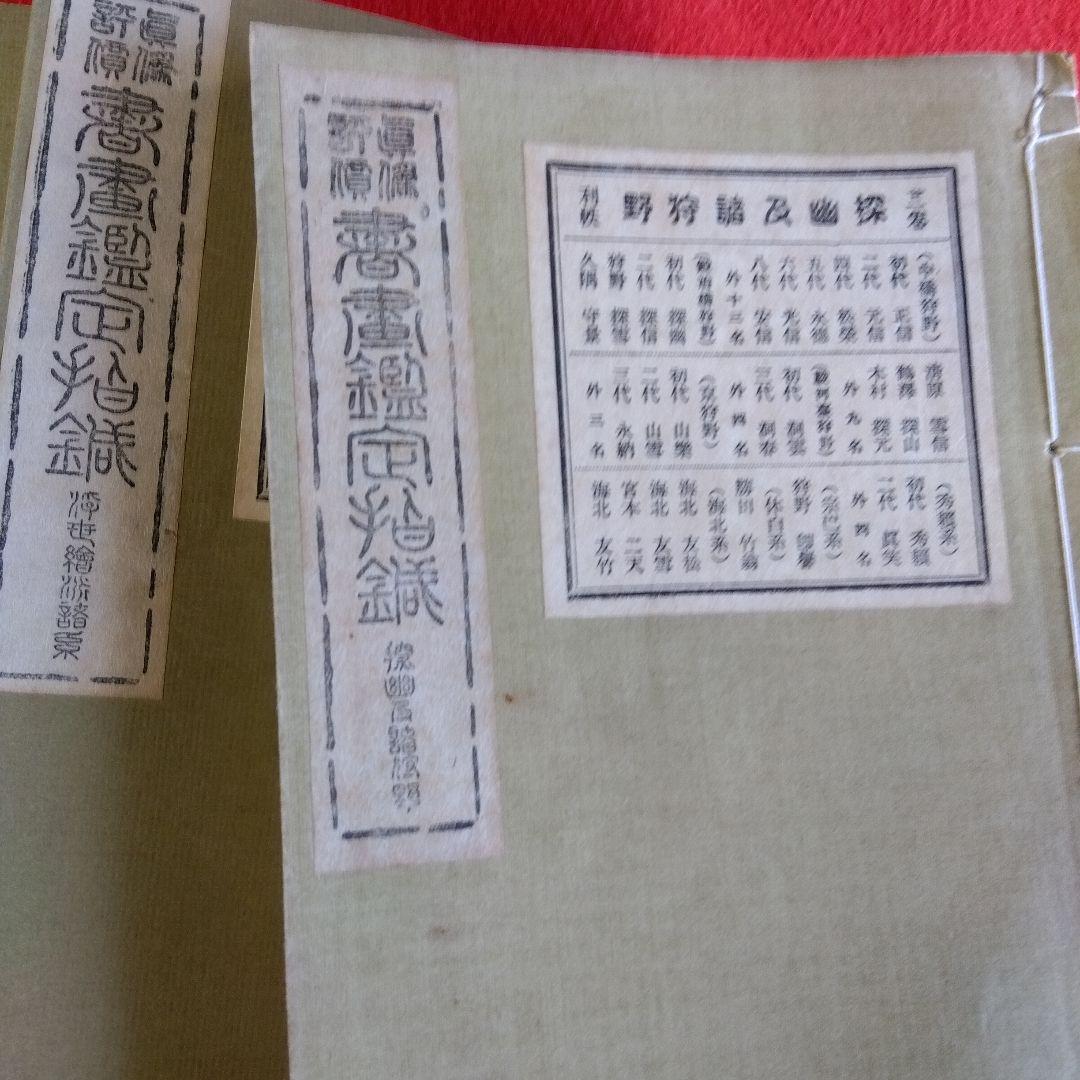 眞偽
評價
書畫鑑定指鍼
浮世繪派諸系
眞偽
評價
書畫鑑定指鍼
探幽及諸狩野
探幽及諸狩野
利帙
(中橋狩野)
初代 正信
二代 元信
四代 松榮
五代 永德
六代 光信
八代 安信
外十二名
(鍛冶橋狩野)
初代 探幽
二代 探信
狩野 探雪
久隅 守景
清原 雪信
鶴澤 探山
木村 探元
外九名
(駿河臺狩野)
初代 洞雲
三代 洞春
外四名
(京狩野)
初代 山樂
二代 山雪
三代 永納
外三名
(秀賴系)
初代 秀賴
二代 眞笑
外四名
狩野
(休白系)
勝田 竹翁
(海北系)
海北 友松
海北 友雪
宮本 二天
海北 友竹